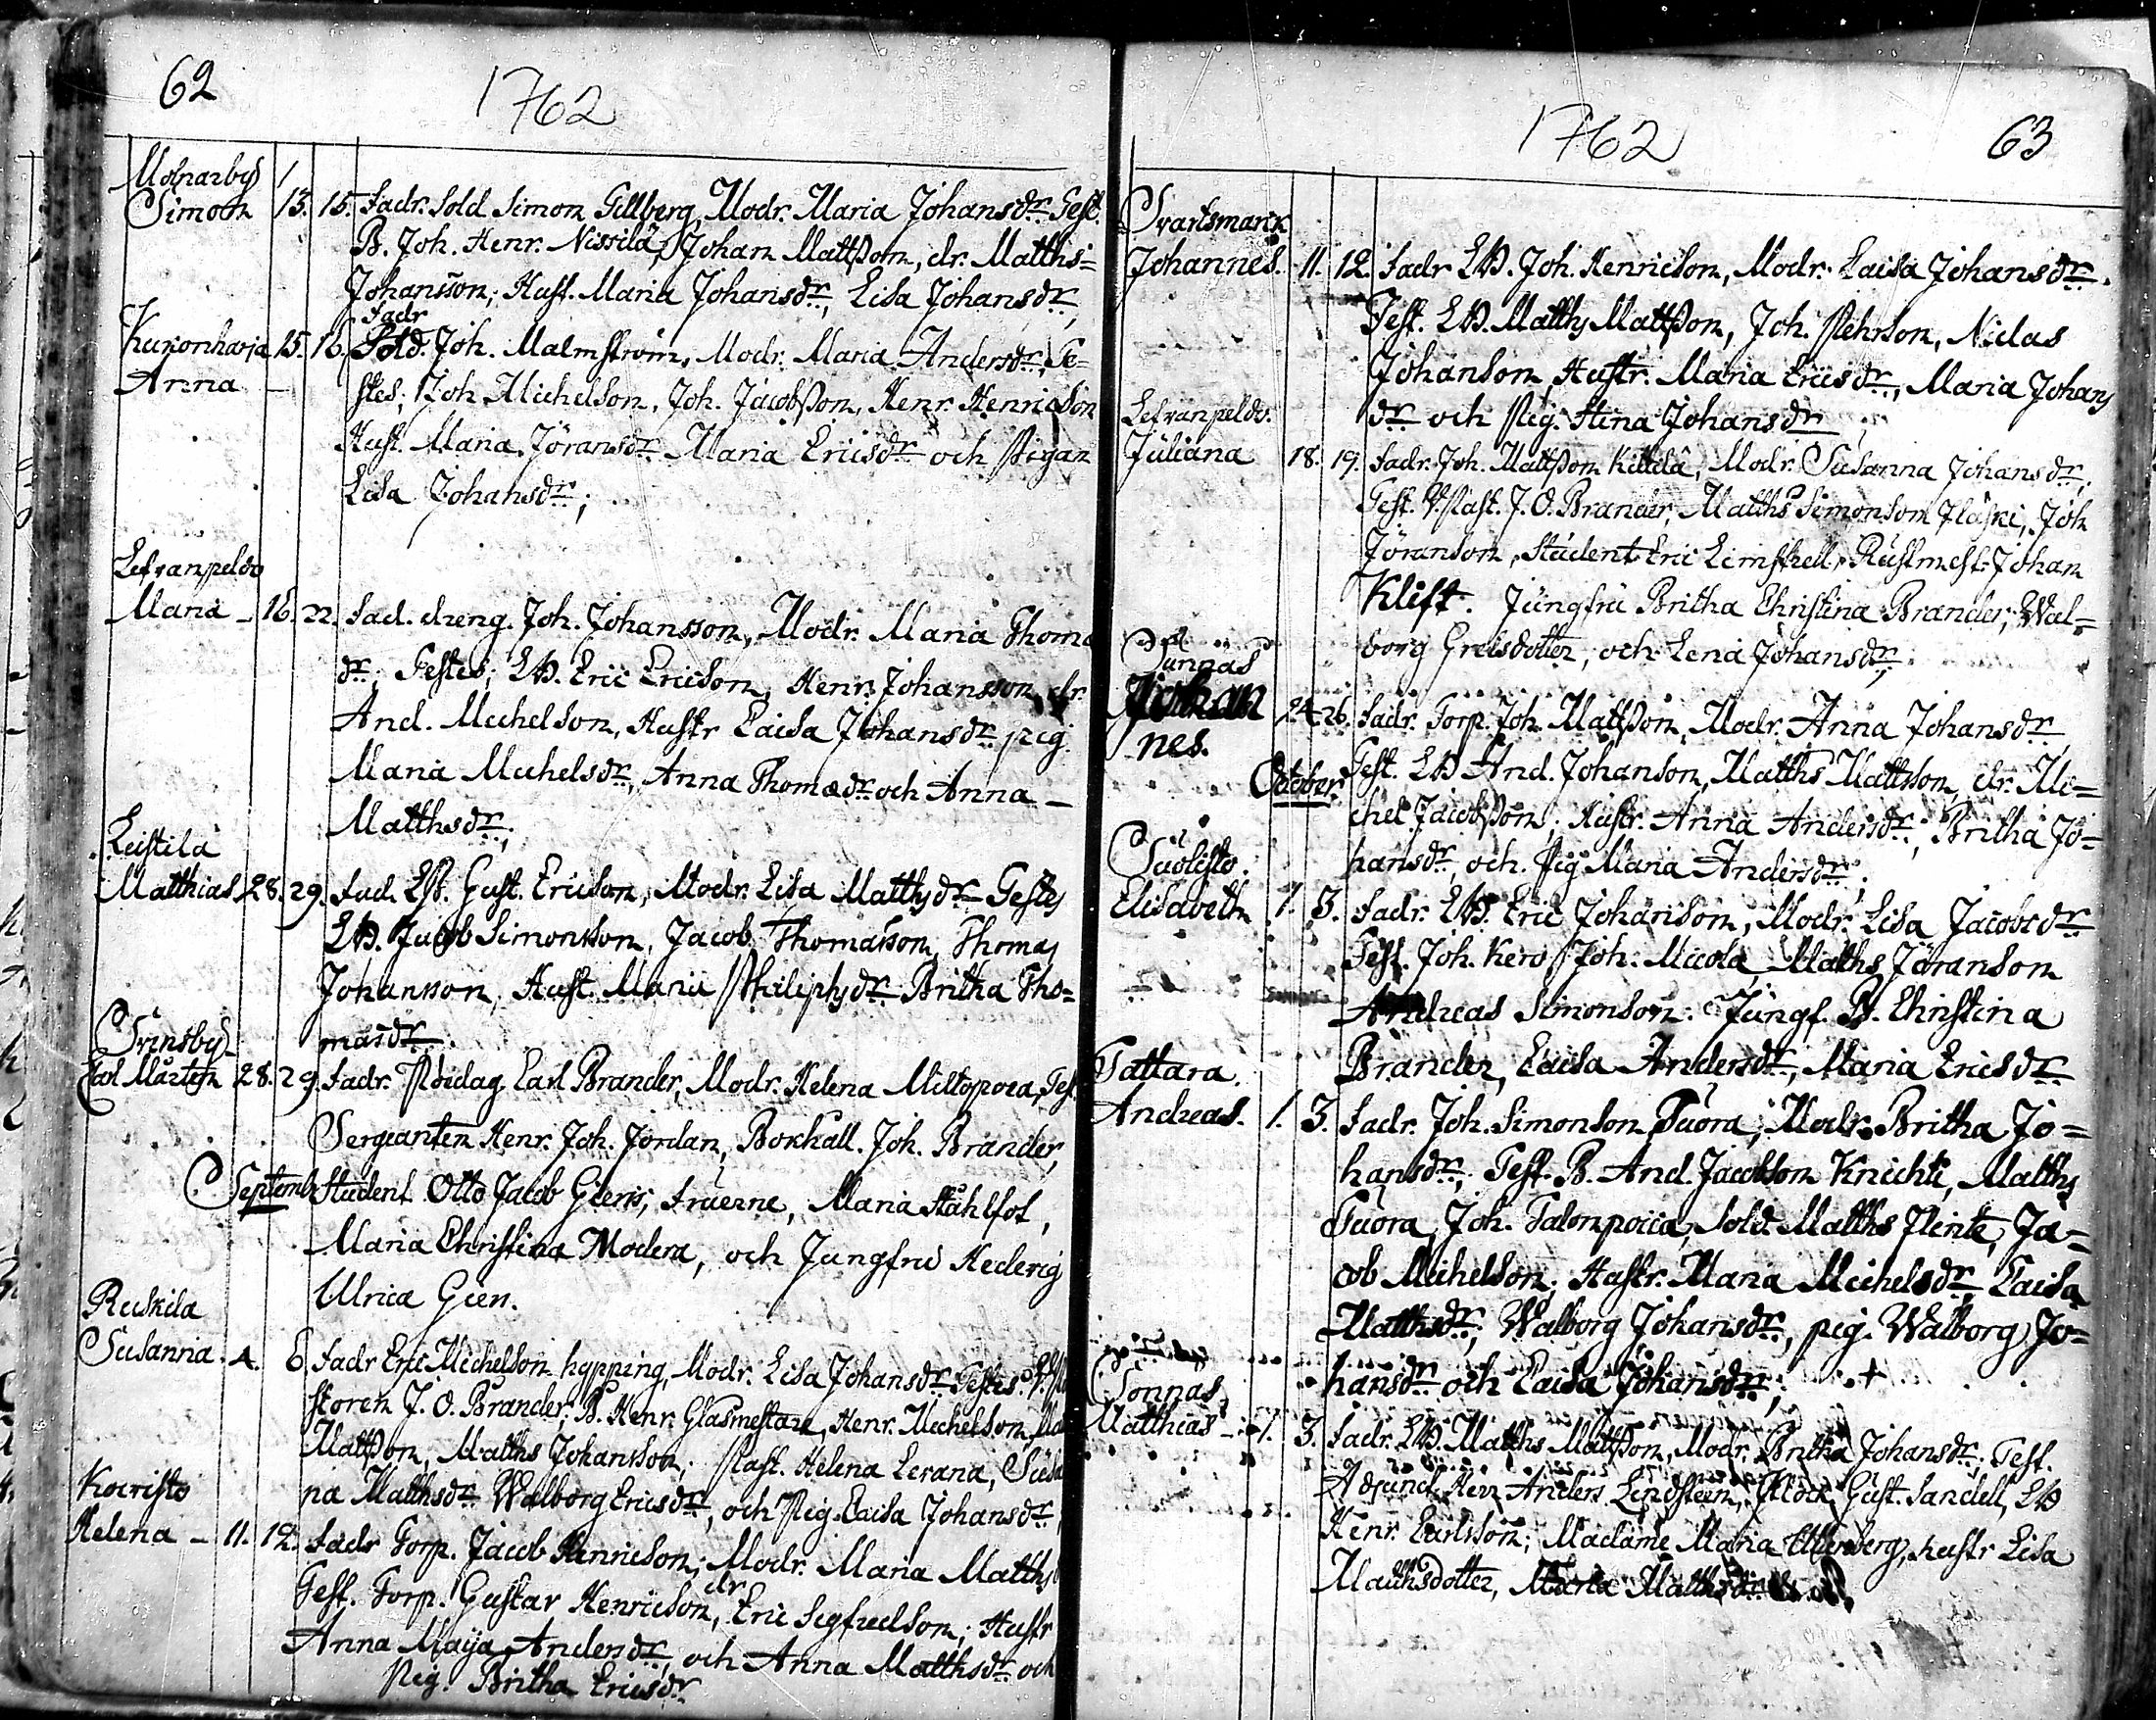 62
1762
Molnarby
Simon 13. 15. Fadr. Sold Simon Gillberg, Modr. Maria Johansdr. Test.
B. Joh. Henr. Nissilä, Johan Mattßon, dr. Matths
Johansson; Hust. Maria Johansdr., Lisa Johansdr.;
Fadr
Kukonharja 15. 16. Sold. Joh. Malmström, Modr. Maria Andersdr. Te-
Anna
stes; Joh Michelson, Joh. Jacobßon, Henr. Henricson
Hust. Maria Jöransdr. Maria Ericsdr. och Pigan
Lisa Johansdr.;
Lefvanpeldo
Maria - 16. 22. Fad. dreng. Joh. Johansson, Modr. Maria Thomæ
dr. Testes; LB. Eric Ericson, Henr. Johansson, dr.
And. Michelson, Hustr Caisa Johansdr. pig.
Maria Michelsdr., Anna Thomædr. och Anna -
Matthsdr.;
Leistila
Matthias 28. 29. Fad. LB. Gust. Ericson, Modr. Lisa Matthsdr. Testes
LB. Jacob Simonsson, Jacob Thomasson, Thomas
Johansson, Hust. Maria Philiphsdr. Britha Tho=
masdr.
Svinsby
Carl Mårten 28. 29. Fadr. Carl Brander, Modr. Helena Miltopoea, Test.
Sergeanten Henr. Joh. Jordan, Bokhall. Joh. Brander,
Septemb. Student Otto Jacob Gien; Fruerne, Maria Ståhlfot,
Maria Christina Modera, och Jungfru Hedevig
Ulrica Gien.
Ruskila
Susanna. 4. 6. Fadr Eric Michelson hypping, Modr. Lisa Johansdr. Testes. V. Pa
storen J. O. Brander; B. Henr. Glasmestare, Henr. Michelson,
Mattßon, Matths Johansson; Past. Helena Lerana, Susa
na Matthsdr. Walborg Ericsdr., och Pig. Caisa Johansdr.
Koivisto
Helena - 11. 12. Fadr Torp. Jacob Henricson; Modr. Maria Matths
Test. Torp. Gustav Henricson, dr Eric Sigfredson; Hustr
Anna Maija Andersdr., och Anna Matthsdr. och
Pig. Britha Ericsdr.
1762
63
Svartsmark
Johannes. 11. 12. Fadr LB. Joh. Henricson, Modr. Caisa Johansdr.
Test. LB. Matths Mattßon, Joh. Pehrson, Niclas
Johanson, Hustr. Maria Ericsdr., Maria Johans
dr. och Pig. Stina Johansdr.;
Lefvanpeldo.
Juliana 18. 19. Fadr. Joh. Mattßon Kittilä, Modr. Susanna Johansdr.;
Test. V. Past. J. O. Brander, Matths Simonson Iläski, Joh
Jöranson, Student Eric Limstrell, Rustmest. Johan
Klift. Jungfru Britha Christina Brander; Wal=
borg Grelsdotter, och Lena Johansdr.;
Sunnäs
Johan
nes. 24. 26. Fadr. Torp. Joh. Mattßon, Modr. Anna Johansdr.
October. Test. LB And. Johanson, Matths Mattsson, dr. Mi=
chel Jacobßon; Hustr. Anna Andersdr., Britha Jo=
hansdr. och Pig Maria Andersdr.;
Suolisto.
Elisabeth 1. 3. Fadr. LB. Eric Johanson, Modr. Lisa Jacobsdr.
Test. Joh. Kero, Joh. Micola, Matths Jöranson
Andreas Simonson. Jungf. B. Christina
Brander, Caisa Andersdr., Maria Ericsdr.
Tattara.
Andreas. 1. 3. Fadr. Joh. Simonson Tuora; Modr. Britha Jo=
hansdr.; Test. B. And. Jacobson Knichti, Matths
Tuora, Joh. Talonpoica, Sold. Matths Flinta, Ja=
cob Michelson; Hustr. Maria Michelsdr., Caisa
Matthsdr., Walborg Johansdr., pig. Walborg Jo=
hansdr. och Caisa Johansdr.; +
Sonnas
Matthias - 1. 3. Fadr. LB. Matths Mattßon, Modr. Britha Johansdr.; Test.
Adjunct. Herr Anders Lindsteen, Klock. Gust. Sandell, LB
Henr. Carlsson; Madame Maria, hustr Lisa
Matthsdotter, Maria Matthsdr.